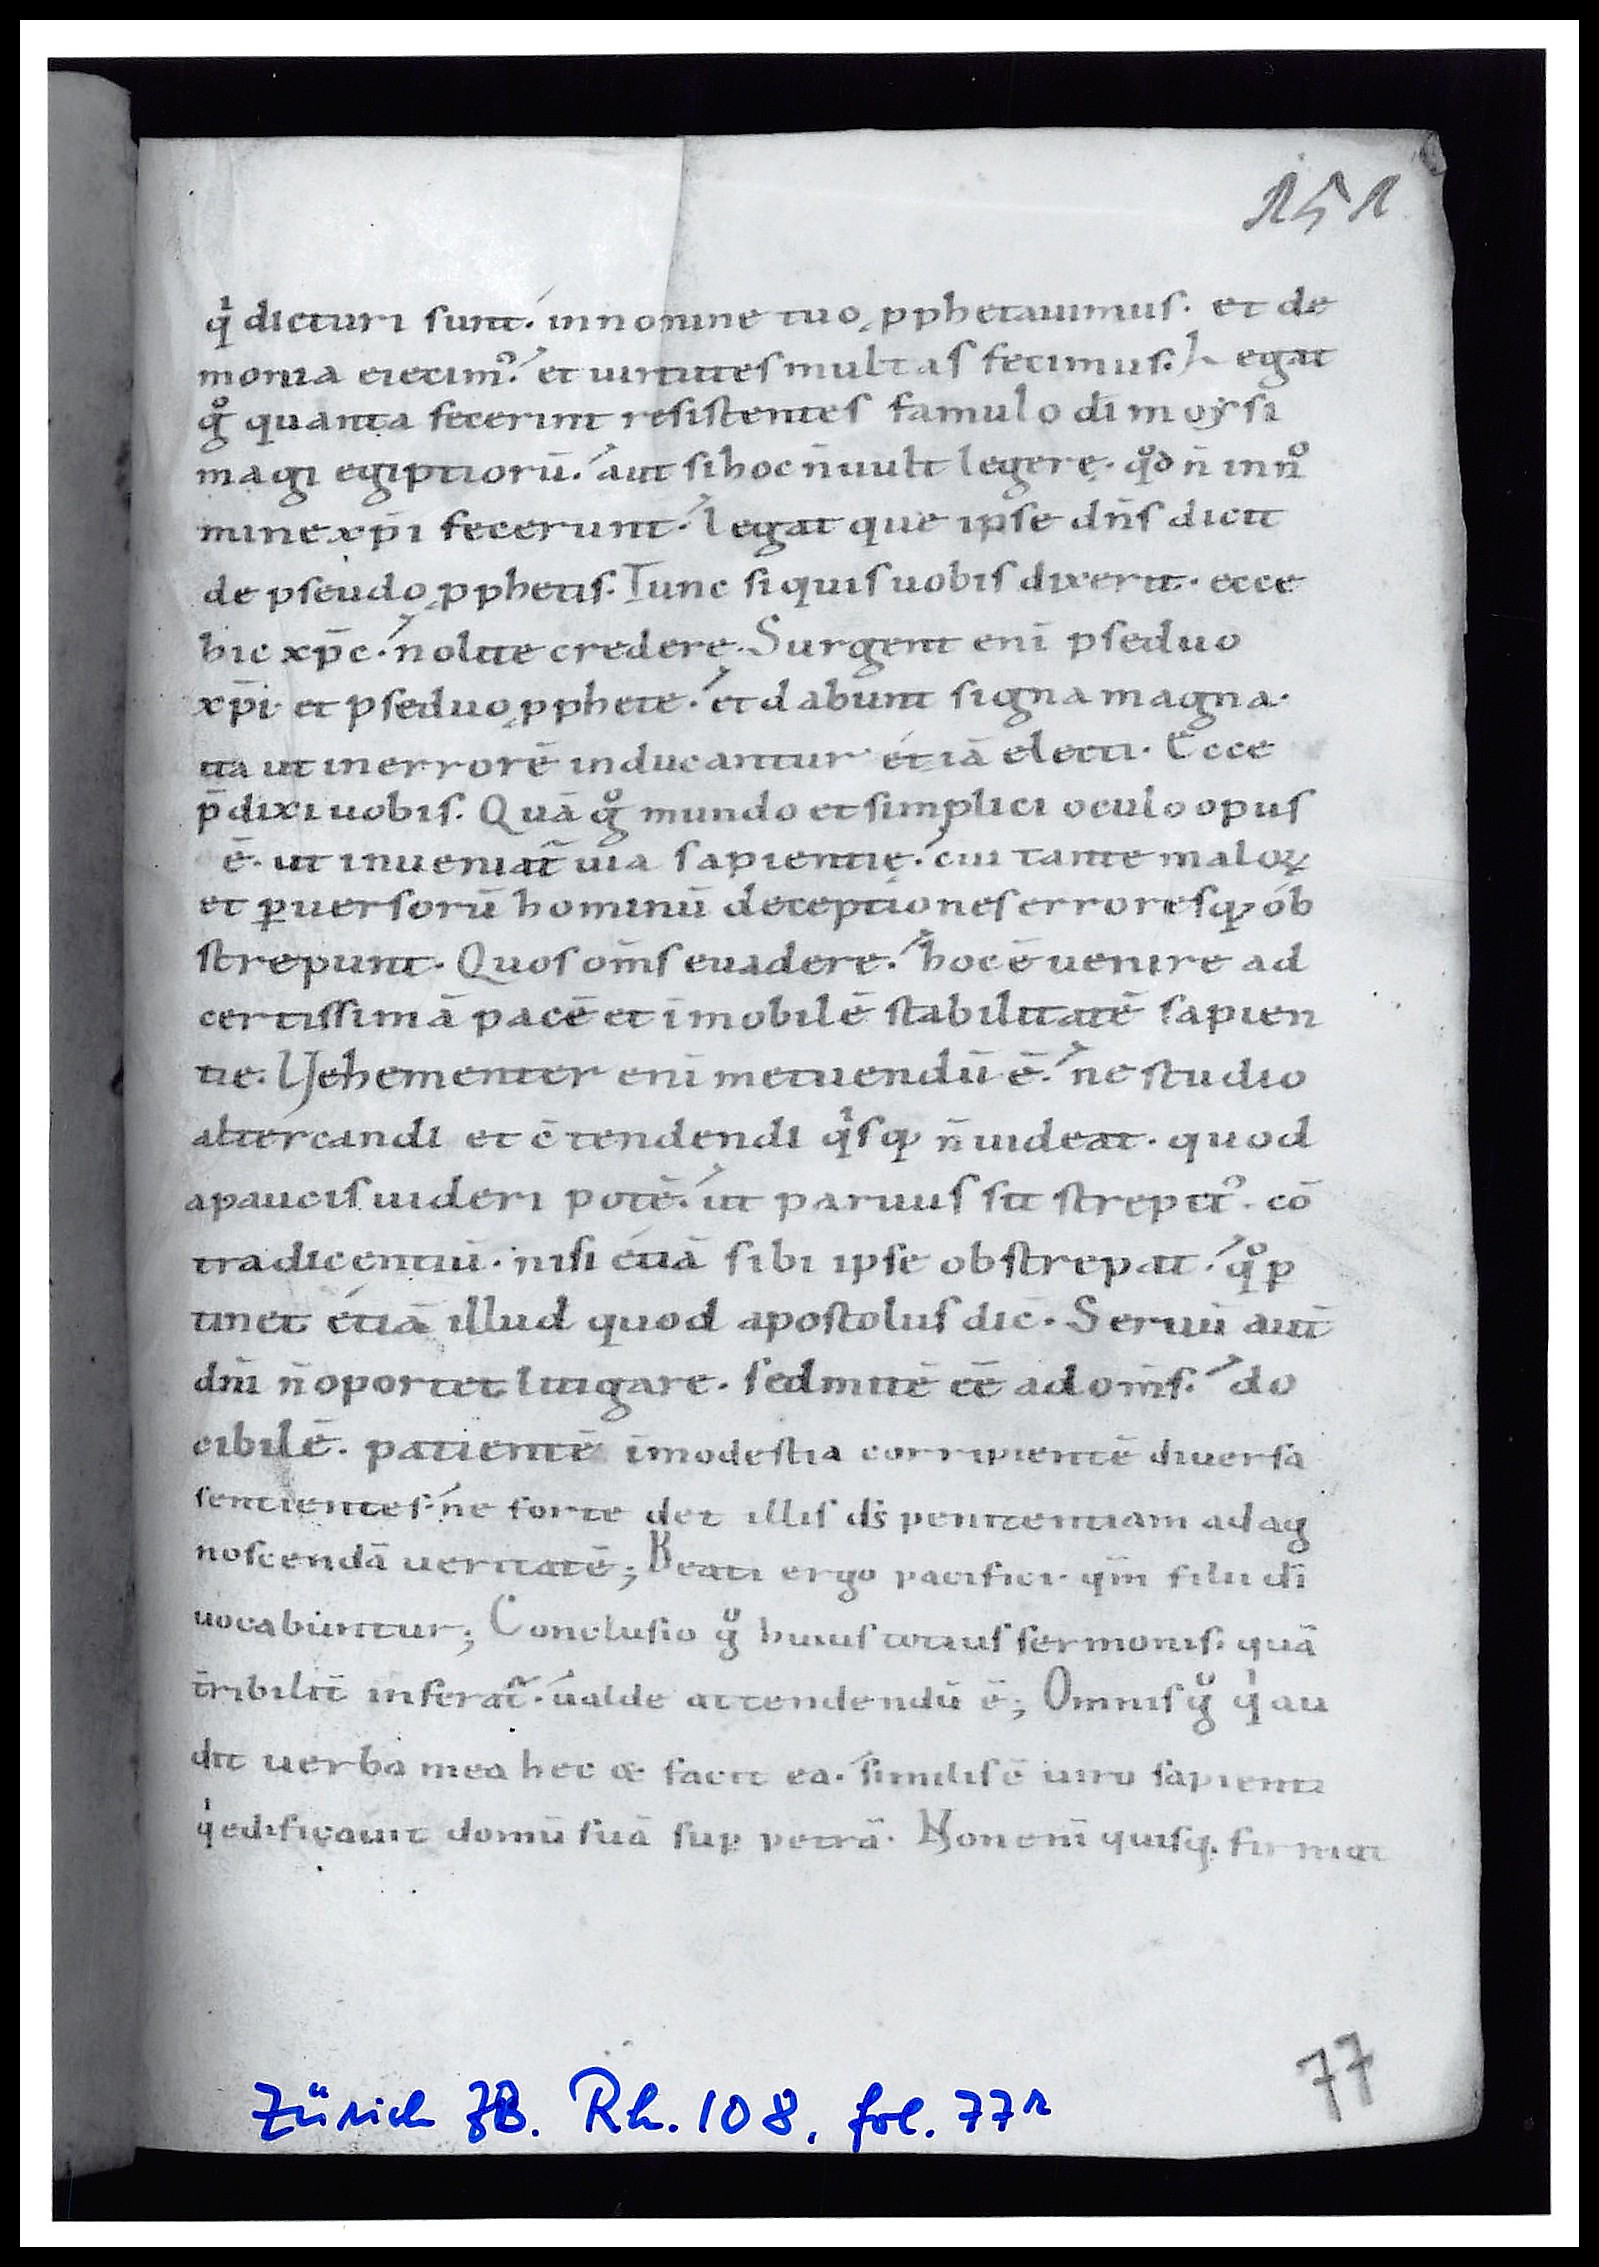 151
qͥ dicturi sunt. in nomine tuo ꝓphetauimus. et de
monia eiecimꝰ. et uirtutes multas fecimus. Legat
gͦ quanta fecerint resistentes famulo dī moẏsi
magi egiptiorū. aut si hoc n̄ uult legere. qͦd n̄ in nͦ
mine xp̄i fecerunt. legat que ipse dn̄s dicit
de pseudo ꝓphetis. Tunc si quis uobis dixerit. ecce
hic xp̄c. nolite credere. Surgent eni̅ pseduo
xp̄i et pseduo ꝓphete. et dabunt signa magna.
ita ut in errorē inducantur etiā electi. Ecce
p̄dixi uobis. Quā gͦ mundo et simplici oculo opus
ē. ut inueniat᷑ uia sapientię. cui tante maloꝝ
et ꝑuersorū hominū deceptiones erroresqꝫ ob
strepunt. Quos om̄s euadere. hoc ē uenire ad
certissimā pacē et īmobilē stabilitatē sapien
tie. Vehementer enī metuendū ē. ne studio
altercandi et c̄tendendi qͥsqꝫ n̄ uideat. quod
a paucis uideri potē. ut paruus sit strepitꝰ. cō
tradicentiū. nisi etiā sibi ipse obstrepat. qͦ ꝑ
tinet etiā illud quod apostolus dic̄. Seruū aut̄
dn̄i n̄ oportet litigare. sed mitē eē ad om̄s. do
cibilē. patientē ī modestia corripientē diuersa
sentientes. ne forte det illis ds̄ penitentiam ad ag
noscendā ueritatē; Beati ergo pacifici. qm̄ filii dī
uocabuntur; Conclusio gͦ huius totius sermonis. quā
t̄ribilit̄ inferat᷑. ualde attendendū ē; Omnis gͦ qͥ au
dit uerba mea hec & facit ea. similis ē uiro sapienti
qͥ edificauit domū suā suꝑ petrā. Non enī quisqꝫ. firmat
77
Zürich ZB. Rh. 108, fol. 77r